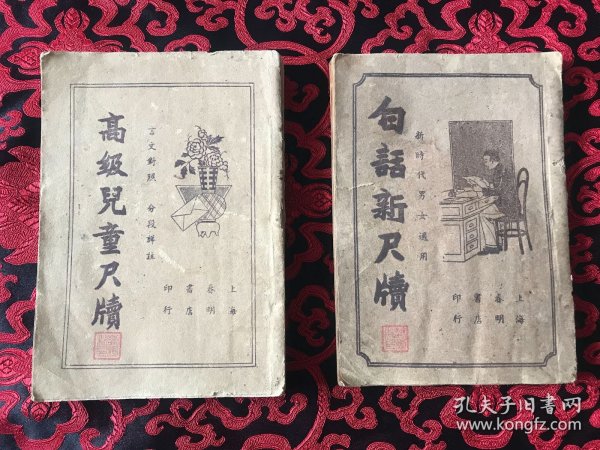 高級兒童尺牘
言文對照 分段詳註
上海
春明
書店
印行
白話新尺牘
新時代男女適用
上海
春明
書店
印行
孔夫子旧书网
www.kongfz.com